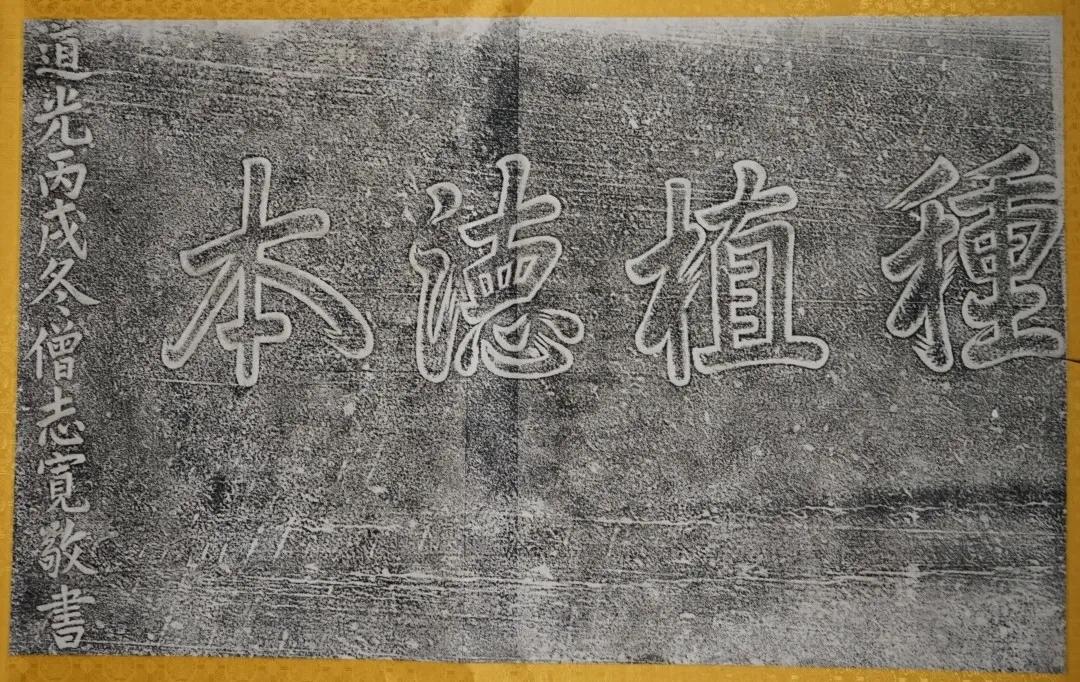 種植德本
道光丙戌冬僧志寬敬書